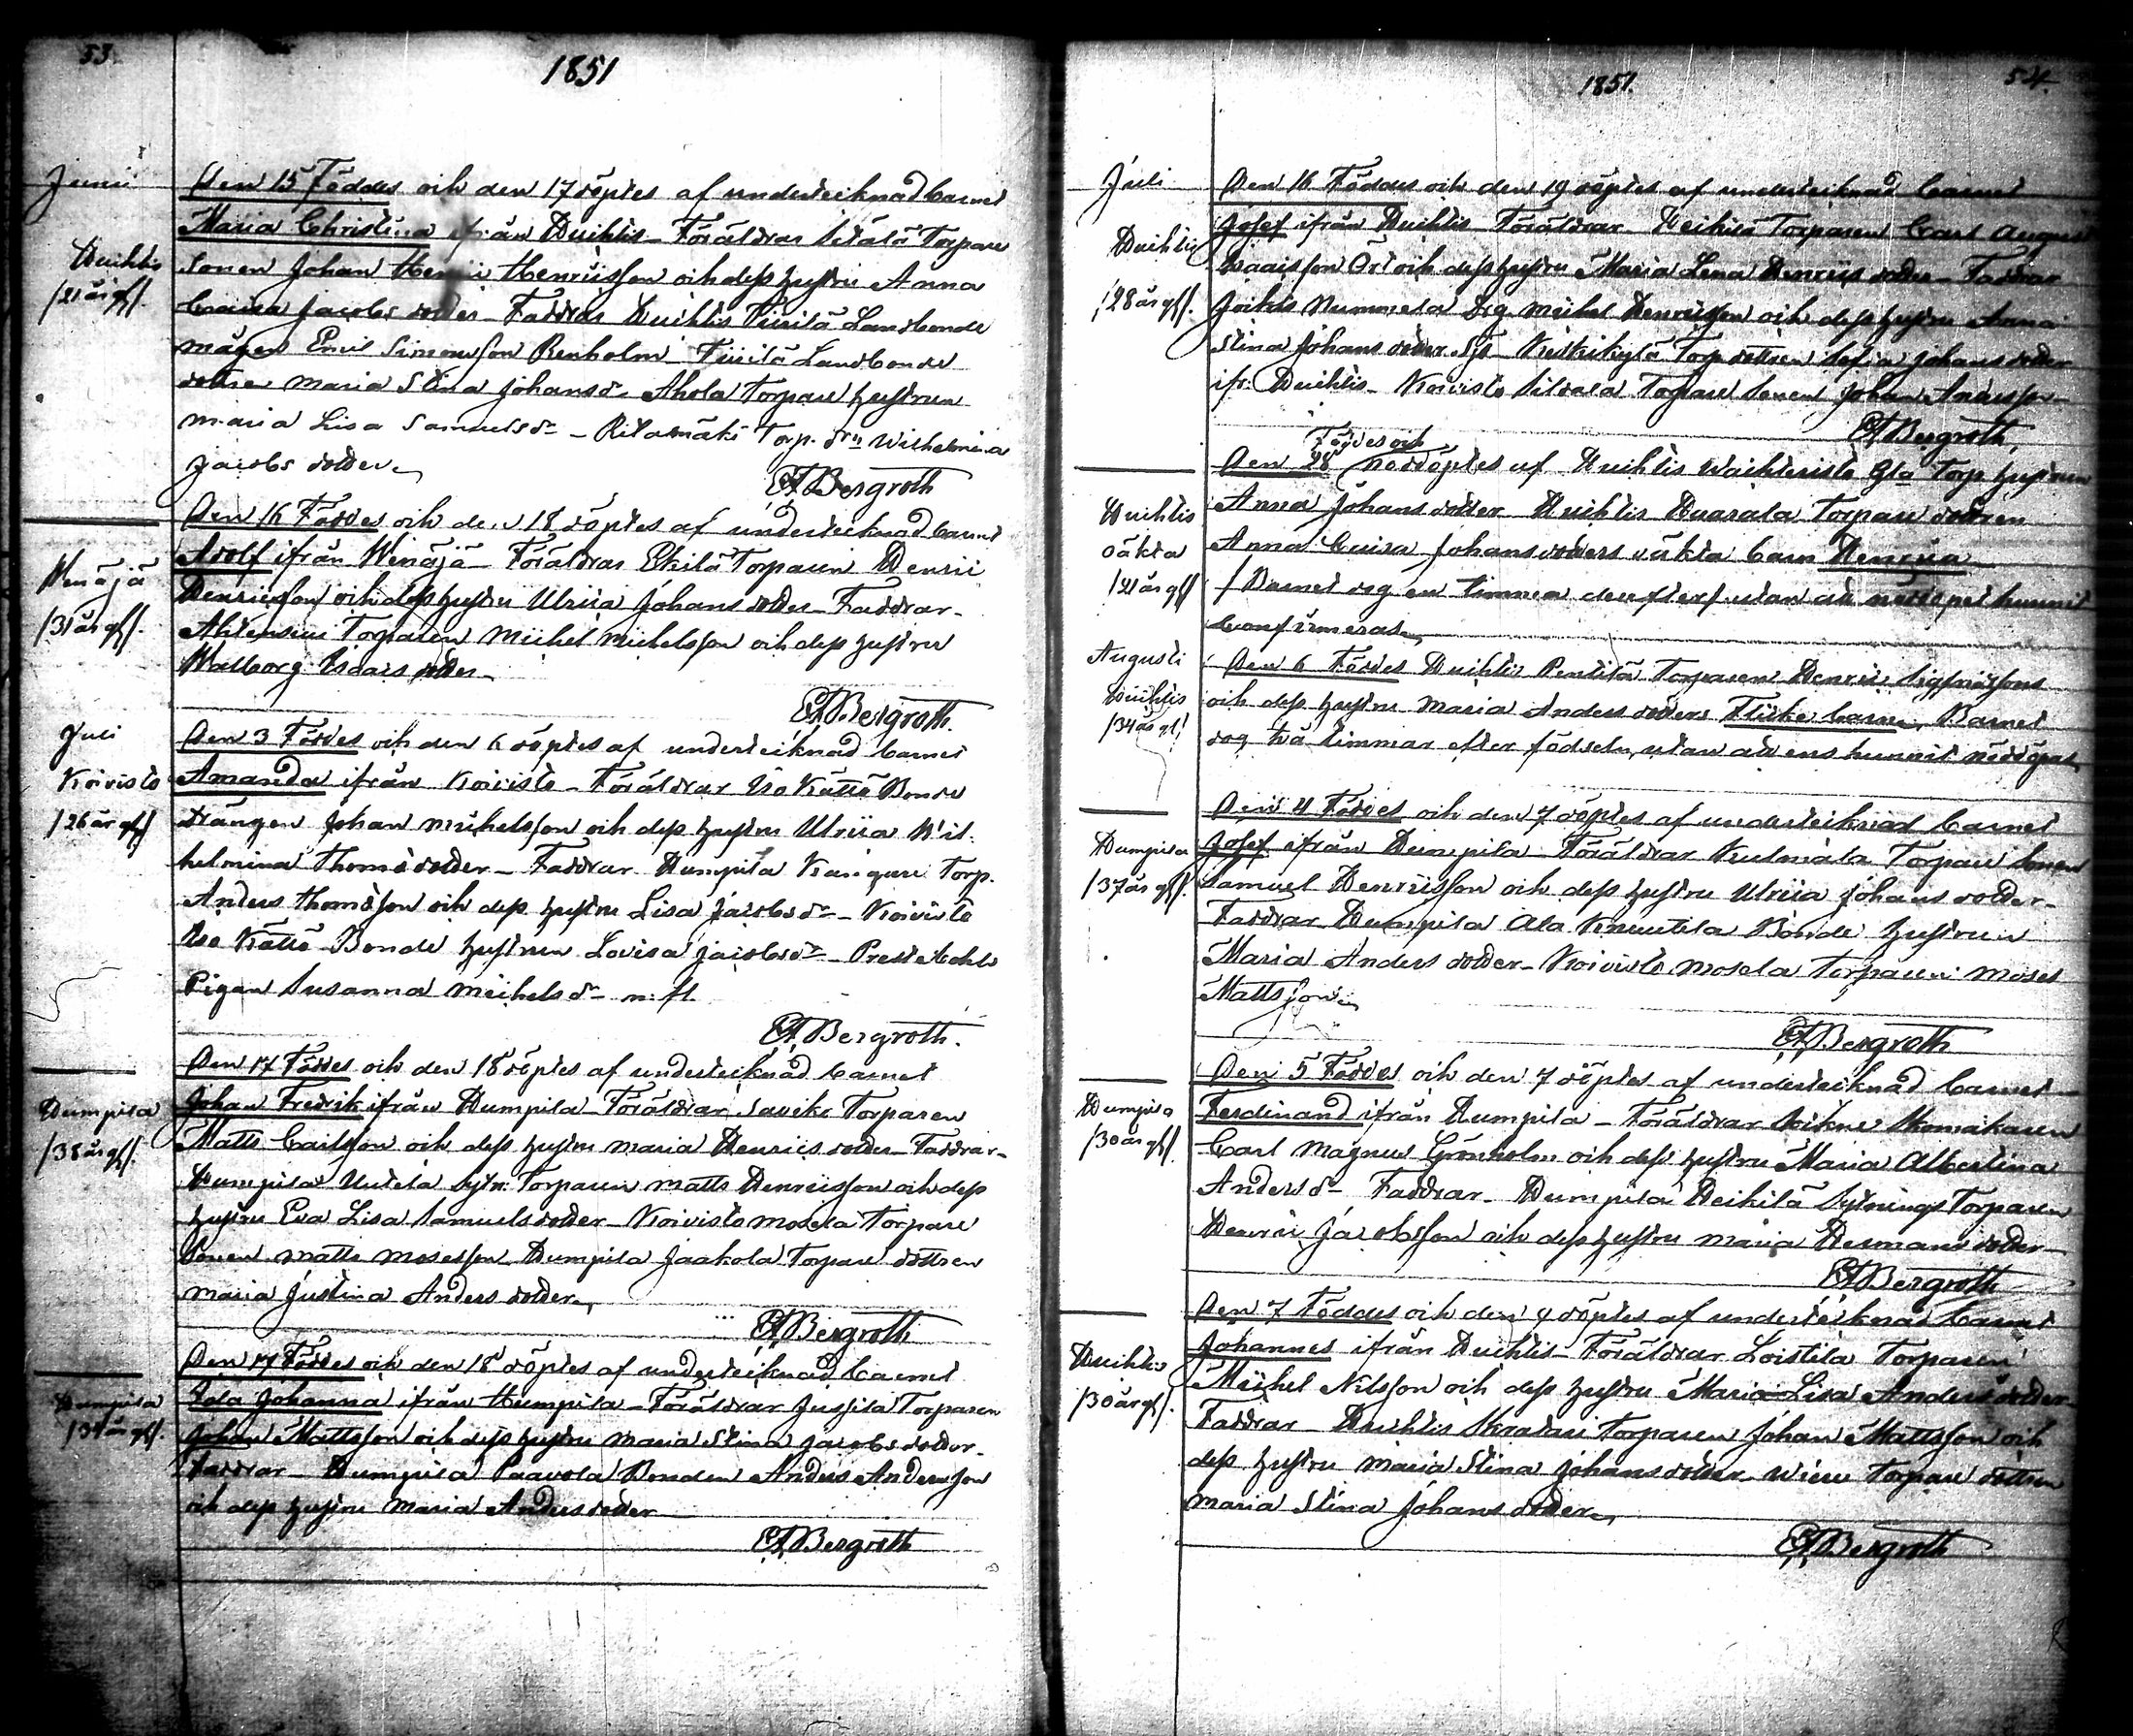 53.
1851
Junii
Den 15 Föddes och den 17 döptes af undertecknad barnet
Maria Christina ifrån Huihtis – Föräldrar Sitälä Torpare
Huihtis
Sonen Johan Henric Henricsson och dess hustru Anna
/21 år gl/.
Jacobs dotter – Faddrar Huihtis Landbonde
mågen Emil Simonsson Renholm Landbonde
dottren Maria Stina Johansdr. Ahola Torpare hustrun
Maria Lisa Samuelsdr – Ritamäki Torp. drn Wilhelmina
Jacobs dotter
EA Bergroth
Den 16 Föddes och den 18 döptes af undertecknad barnet
Adolf ifrån Wenäjä – Föräldrar Torparen Henric
Wenäjä
Henricsson och dess hustru Ulrica Johans dotter – Faddrar –
/31 år gl/.
Torparen Michel Michelsson och dess hustru
Walborg Isaacs dotter
EA Bergroth.
Juli
Den 3 Föddes och den 6 döptes af undertecknad barnet
Koivisto
Amanda ifrån Koivisto – Föräldrar Iso Kättö Bonde
/26 år gl/
Drängen Johan Michelsson och dess hustru Ulrica Wil-
helmina Thomæ dotter – Faddrar Humpila Kangare Torp.
Anders Thomæsson och dess hustru Lisa Jacobsdr – Koivisto
Iso Kättö Bonde hustrun Lovisa Jacobsdr – Prestebohls
Pigan Susanna Michels dr m. fl.
EA Bergroth.
Den 17 Föddes och den 18 döptes af undertecknad barnet
Humpila
Johan Fredrik ifrån Humpila – Föräldrar Torparen
/38 år gl/.
Matts Carlsson och dess hustru Maria Henrics dotter – Faddrar –
Humpila Uutela Sytn: Torparen Matts Henricsson och dess
hustru Eva Lisa Samuelsdotter – Koivisto Mosela Torpare
Sonen Matts Mosesson Humpila Jaakola Torpare dottren
Maria Justina Anders dotter
EA Bergroth
Den 17 Föddes och den 18 döptes af undertecknad barnet
Humpila
Ida Johanna ifrån Humpila – Föräldrar Jussila Torparen
/34 år gl/.
Johan Mattsson och dess hustru Maria Stina Jacobs dotter.
Faddrar – Humpila Paavola Bonden Anders Andersson
och dess hustru Maria Anders dotter
EA Bergroth
1851.
54.
Juli
Den 16 Föddes och den 19 döptes af undertecknad barnet
Josef ifrån Huihtis – Föräldrar – Heikilä Torparen Carl August
Huihtis
Isaacsson Ört och dess hustru Maria Lena Henrics dotter – Faddrar
/28 år gl/.
Jockis Nummela Drg Michel Henricsson och dess hustru Anna
Stina Johans dotter Torp dottren Sofia Johans dotter
ifr. Huihtis – Koivisto Torpare Sonen Johan Andersson
EA Bergroth
Föddes och
Den 28 nöddöptes af Huihtis Torp hustrun
Huihtis
Anna Johans dotter Huihtis Torpare dottren
oäkta
Anna Johansdotters oäkta barn Henrica
/21 år gl/
/ Barnet dog en timma derefter / utan att nöddopet hunnit
Confirmeras
Augusti
Den 6 Föddes Huihtis Pentilä Torparen Henric Sigfridssons
Huihtis
och dess hustru Maria Anders dotters Flicke barn, Barnet
/34 år gl/
dog två timmar efter födseln, utan att ens hunnit nöddöpas
Den 4 Föddes och den 7 döptes af undertecknad barnet
Humpila
Josef ifrån Humpila – Föräldrar Torpare Sonen
/37 år gl/.
Samuel Henricsson och dess hustru Ulrica Johans dotter –
Faddrar Humpila Ala Bonde hustrun
Maria Anders dotter – Koivisto Mosela Torparen Moses
Mattsson
EA Bergroth
Den 5 Föddes och den 7 döptes af undertecknad barnet
Humpila
Ferdinand ifrån Humpila – Föräldrar Skomakaren
/30 år gl/.
Carl Magnus Grönholm och dess hustru Maria Albertina
Andersdr – Faddrar – Humpila Heikilä Sytnings Torparen
Henric Jacobsson och dess hustru Maria Hermans dotter
EA Bergroth
Den 7 Föddes och den 9 döptes af undertecknad barnet
Huihtis
Johannes ifrån Huihtis – Föräldrar Loistila Torparen
/30 år gl/.
Michel Nilsson och dess hustru Maria Lisa Anders dotter
Faddrar – Huihtis Torparen Johan Mattsson och
dess hustru Maria Stina Johans dotter Torpare dottren
Maria Stina Johans dotter
EA Bergroth